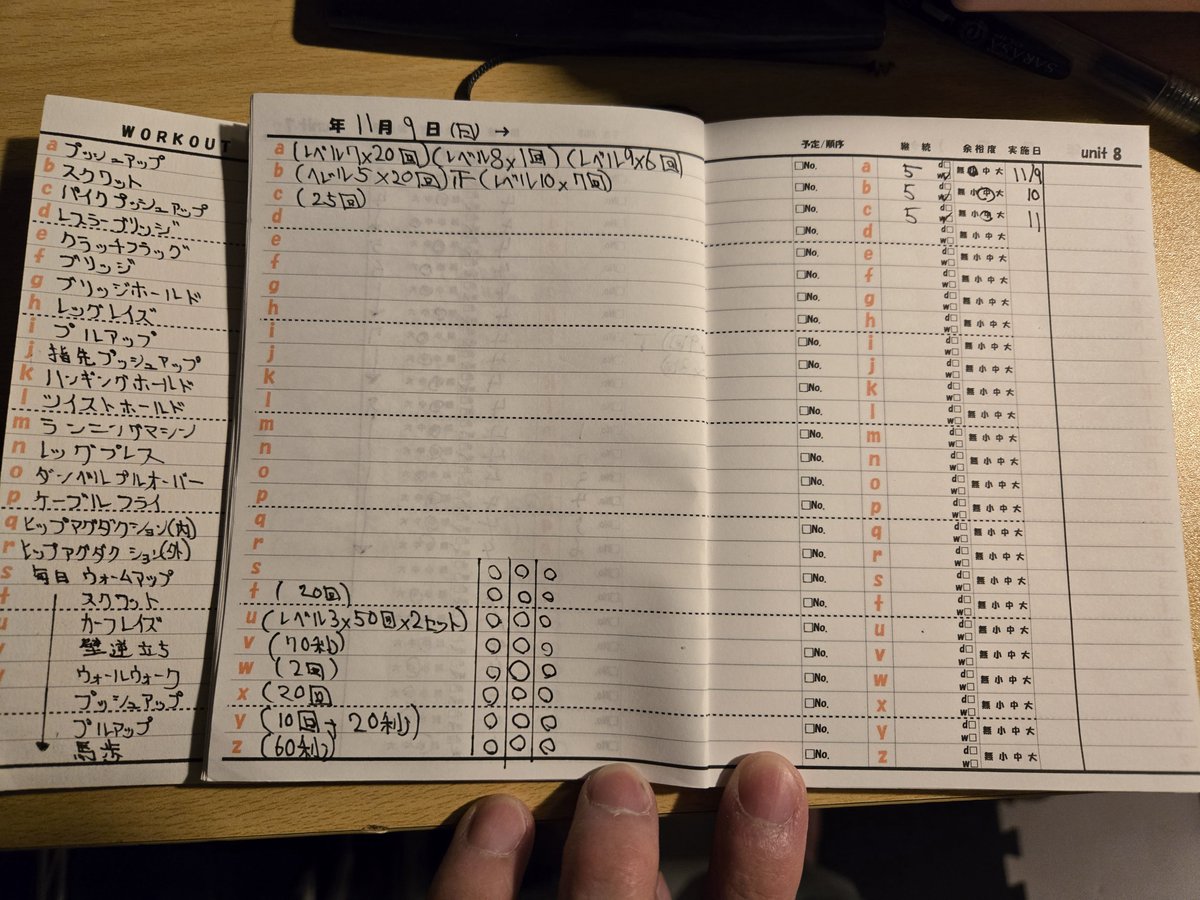 WORKOUT
a プッシュアップ
b スクワット
c パイクプッシュアップ
d レスラーブリッジ
e クラッチフラッグ
f ブリッジ
g ブリッジホールド
h レッグレイズ
i プルアップ
j 指先プッシュアップ
k ハンギングホールド
l ツイストホールド
m ランニングマシン
n レッグプレス
o ダンベルプルオーバー
p ケーブルフライ
q ヒップアグダクション(内)
r ヒップアグダクション(外)
s 毎日 ウォームアップ
t スクワット
u カーフレイズ
v 壁逆立ち
ウォールウォーク
プッシュアップ
プルアップ
馬歩
年 11月 9日 (日) →
a (レベル7×20回)(レベル8×1回)(レベル9×6回)
b (レベル5×20回) 正 (レベル10×7回)
c (25回)
d
e
f
g
h
i
j
k
l
m
n
o
p
q
r
s ○ ○ ○
t (20回) ○ ○ ○
u (レベル3×50回×2セット) ○ ○ ○
v (70秒) ○ ○ ○
w (2回) ○ ○ ○
x (20回 ○ ○ ○
y (10回→20秒) ○ ○ ○
z (60秒) ○ ○ ○
予定/順序 継続 余裕度 実施日 unit 8
□No. a 5 d□ w□ 無 小 中 大 11/9
□No. b 5 d□ w□ 無 小 中 大 10
□No. c 5 d□ w□ 無 小 中 大 11
□No. d d□ w□ 無 小 中 大
□No. e d□ w□ 無 小 中 大
□No. f d□ w□ 無 小 中 大
□No. g d□ w□ 無 小 中 大
□No. h d□ w□ 無 小 中 大
□No. i d□ w□ 無 小 中 大
□No. j d□ w□ 無 小 中 大
□No. k d□ w□ 無 小 中 大
□No. l d□ w□ 無 小 中 大
□No. m d□ w□ 無 小 中 大
□No. n d□ w□ 無 小 中 大
□No. o d□ w□ 無 小 中 大
□No. p d□ w□ 無 小 中 大
□No. q d□ w□ 無 小 中 大
□No. r d□ w□ 無 小 中 大
□No. s d□ w□ 無 小 中 大
□No. t d□ w□ 無 小 中 大
□No. u d□ w□ 無 小 中 大
□No. v d□ w□ 無 小 中 大
□No. w d□ w□ 無 小 中 大
□No. x d□ w□ 無 小 中 大
□No. y d□ w□ 無 小 中 大
□No. z d□ w□ 無 小 中 大
SARASA